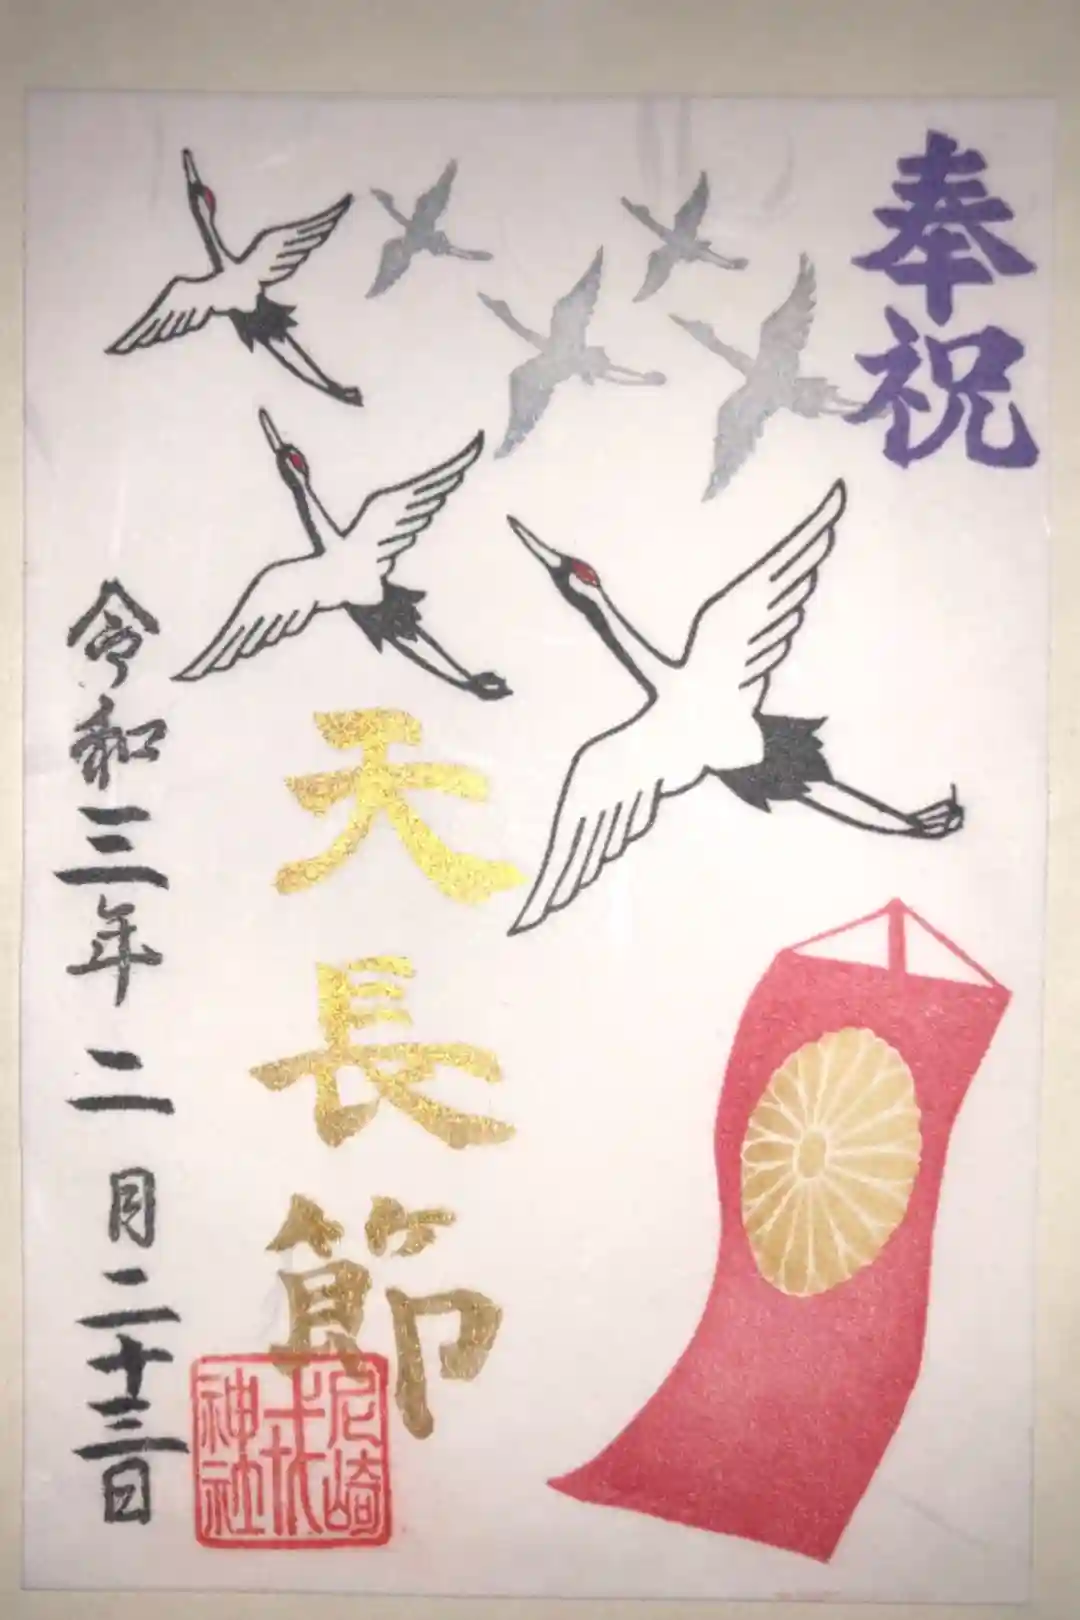 奉祝
天長節
令和三年二月二十三日
尼崎
神社